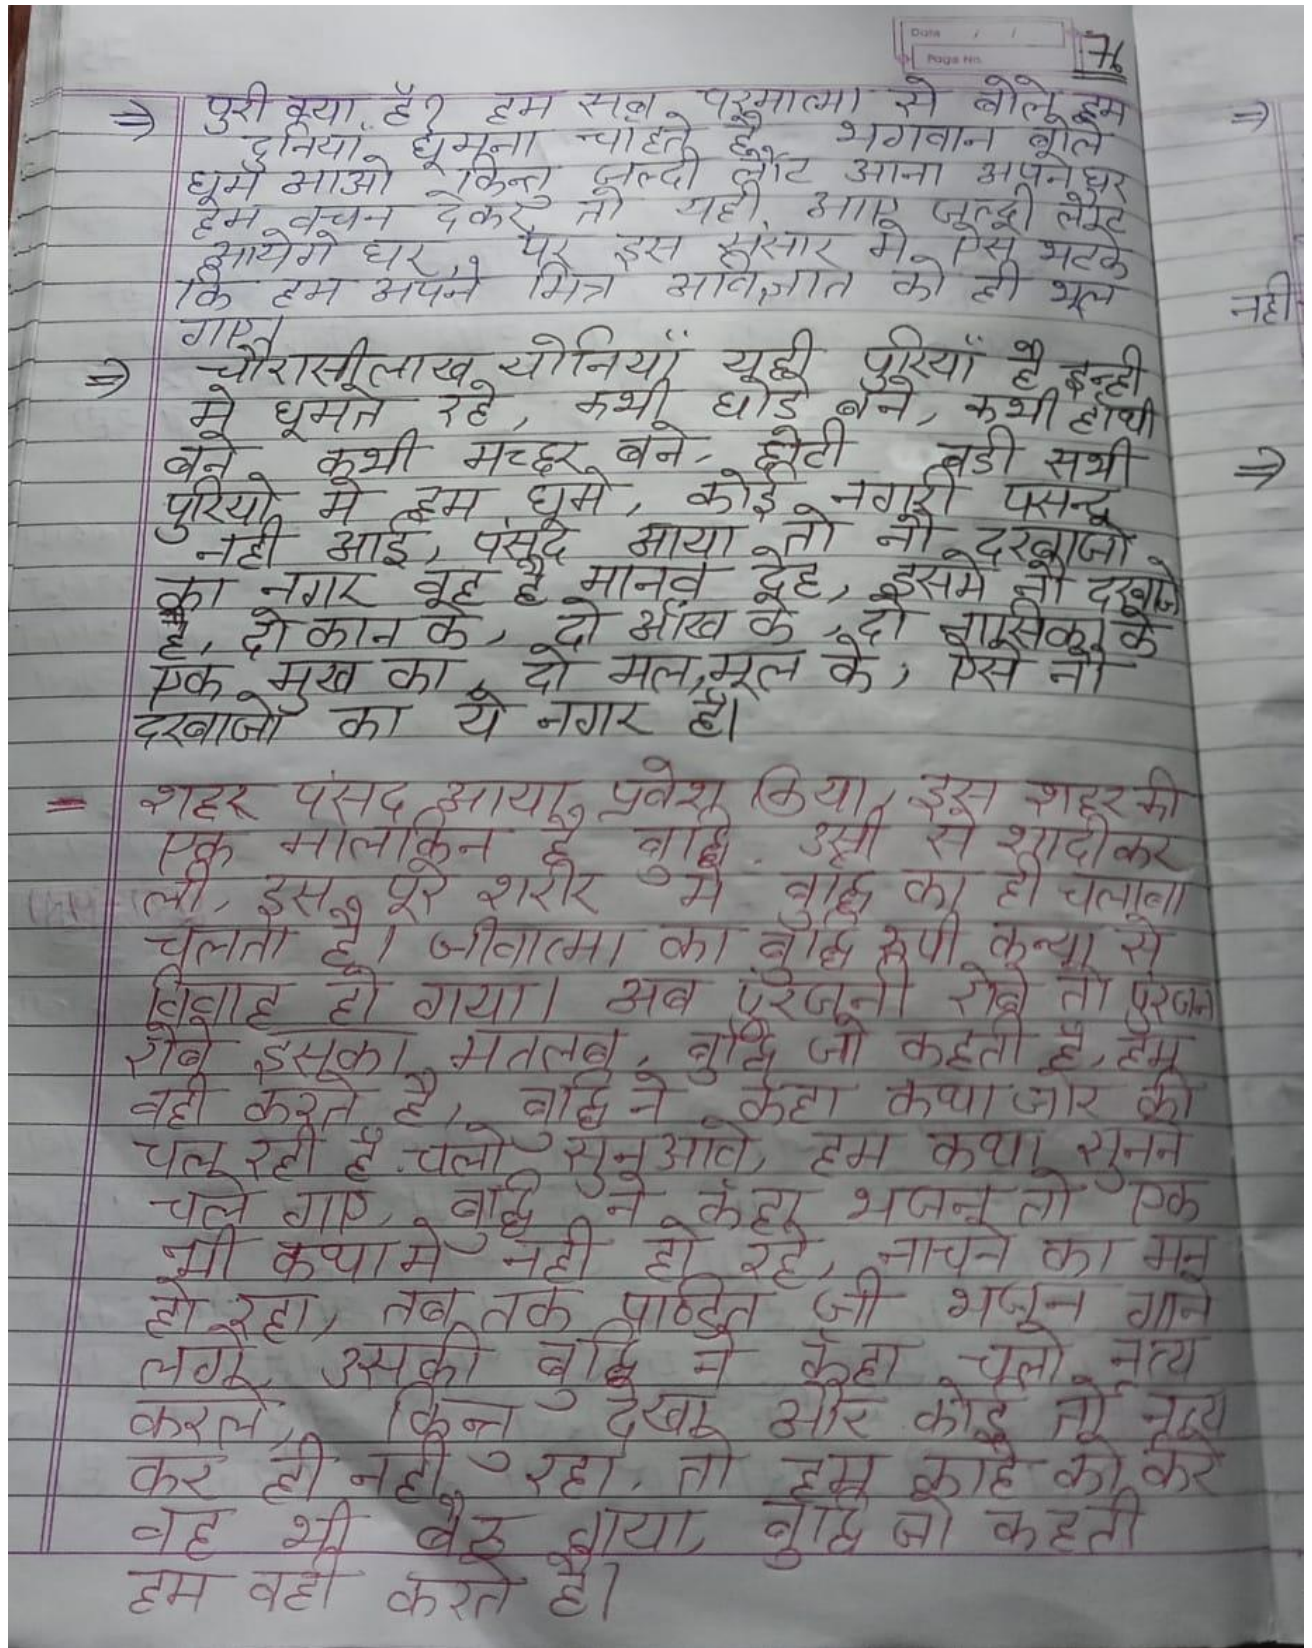 Date / /
Page No.
76
⇒ पुरी क्या है? हम सब परमात्मा से बोले हम
दुनियां घूमना चाहते है, भगवान बोले
घूम आओ किन्तु जल्दी लौट आना अपने घर
हम वचन देकर तो यही आए जल्दी लौट
आयेगे घर, पर इस संसार मे ऐसे भटके
कि हम अपने मित्र अविज्ञात को ही भूल
गए।
⇒ चौरासीलाख योनियाँ यही पुरियाँ है इन्ही
मे घूमते रहे, कभी घोडे बने, कभी हाथी
बने कभी मच्छर बने, छोटी बडी सभी
पुरियो मे हम घूमे, कोई नगरी पसन्द
नही आई, पंसद आया तो नौ दरबाजो
का नगर वह है मानव देह, इसमे नौ दरबाजे
है, दो कान के, दो आँख के, दो नासिका के
एक मुख का, दो मल,मूल के, ऐसे नौ
दरबाजों का ये नगर है।
= शहर पंसद आया, प्रवेश किया, इस शहर की
एक मालकिन है बुद्धि उसी से शादी कर
ली, इस पूरे शरीर मे बुद्धि का ही चलाबा
चलता है। जीवात्मा का बुद्धि रूपी कन्या से
विवाह हो गया। अब पुरंजनी रोबे तो पुरंजन
रोबे इसका मतलब, बुद्धि जो कहती है, हम
वही करते है, बुद्धि ने कहा कथा जोर की
चल रही है चलो सुनआवे, हम कथा सुनने
चले गए, बुद्धि ने कहा भजन तो एक
भी कथा मे नही हो रहे, नाचने का मन
हो रहा, तब तक पण्डित जी भजन गाने
लगे, उसकी बुद्धि ने कहा चलो नृत्य
करले, किन्तु देखा और कोई तो नृत्य
कर ही नही रहा, तो हम काहे को करे
वह भी बैठ गया, बुद्धि जो कहती
हम वही करते है।
⇒
नही
⇒